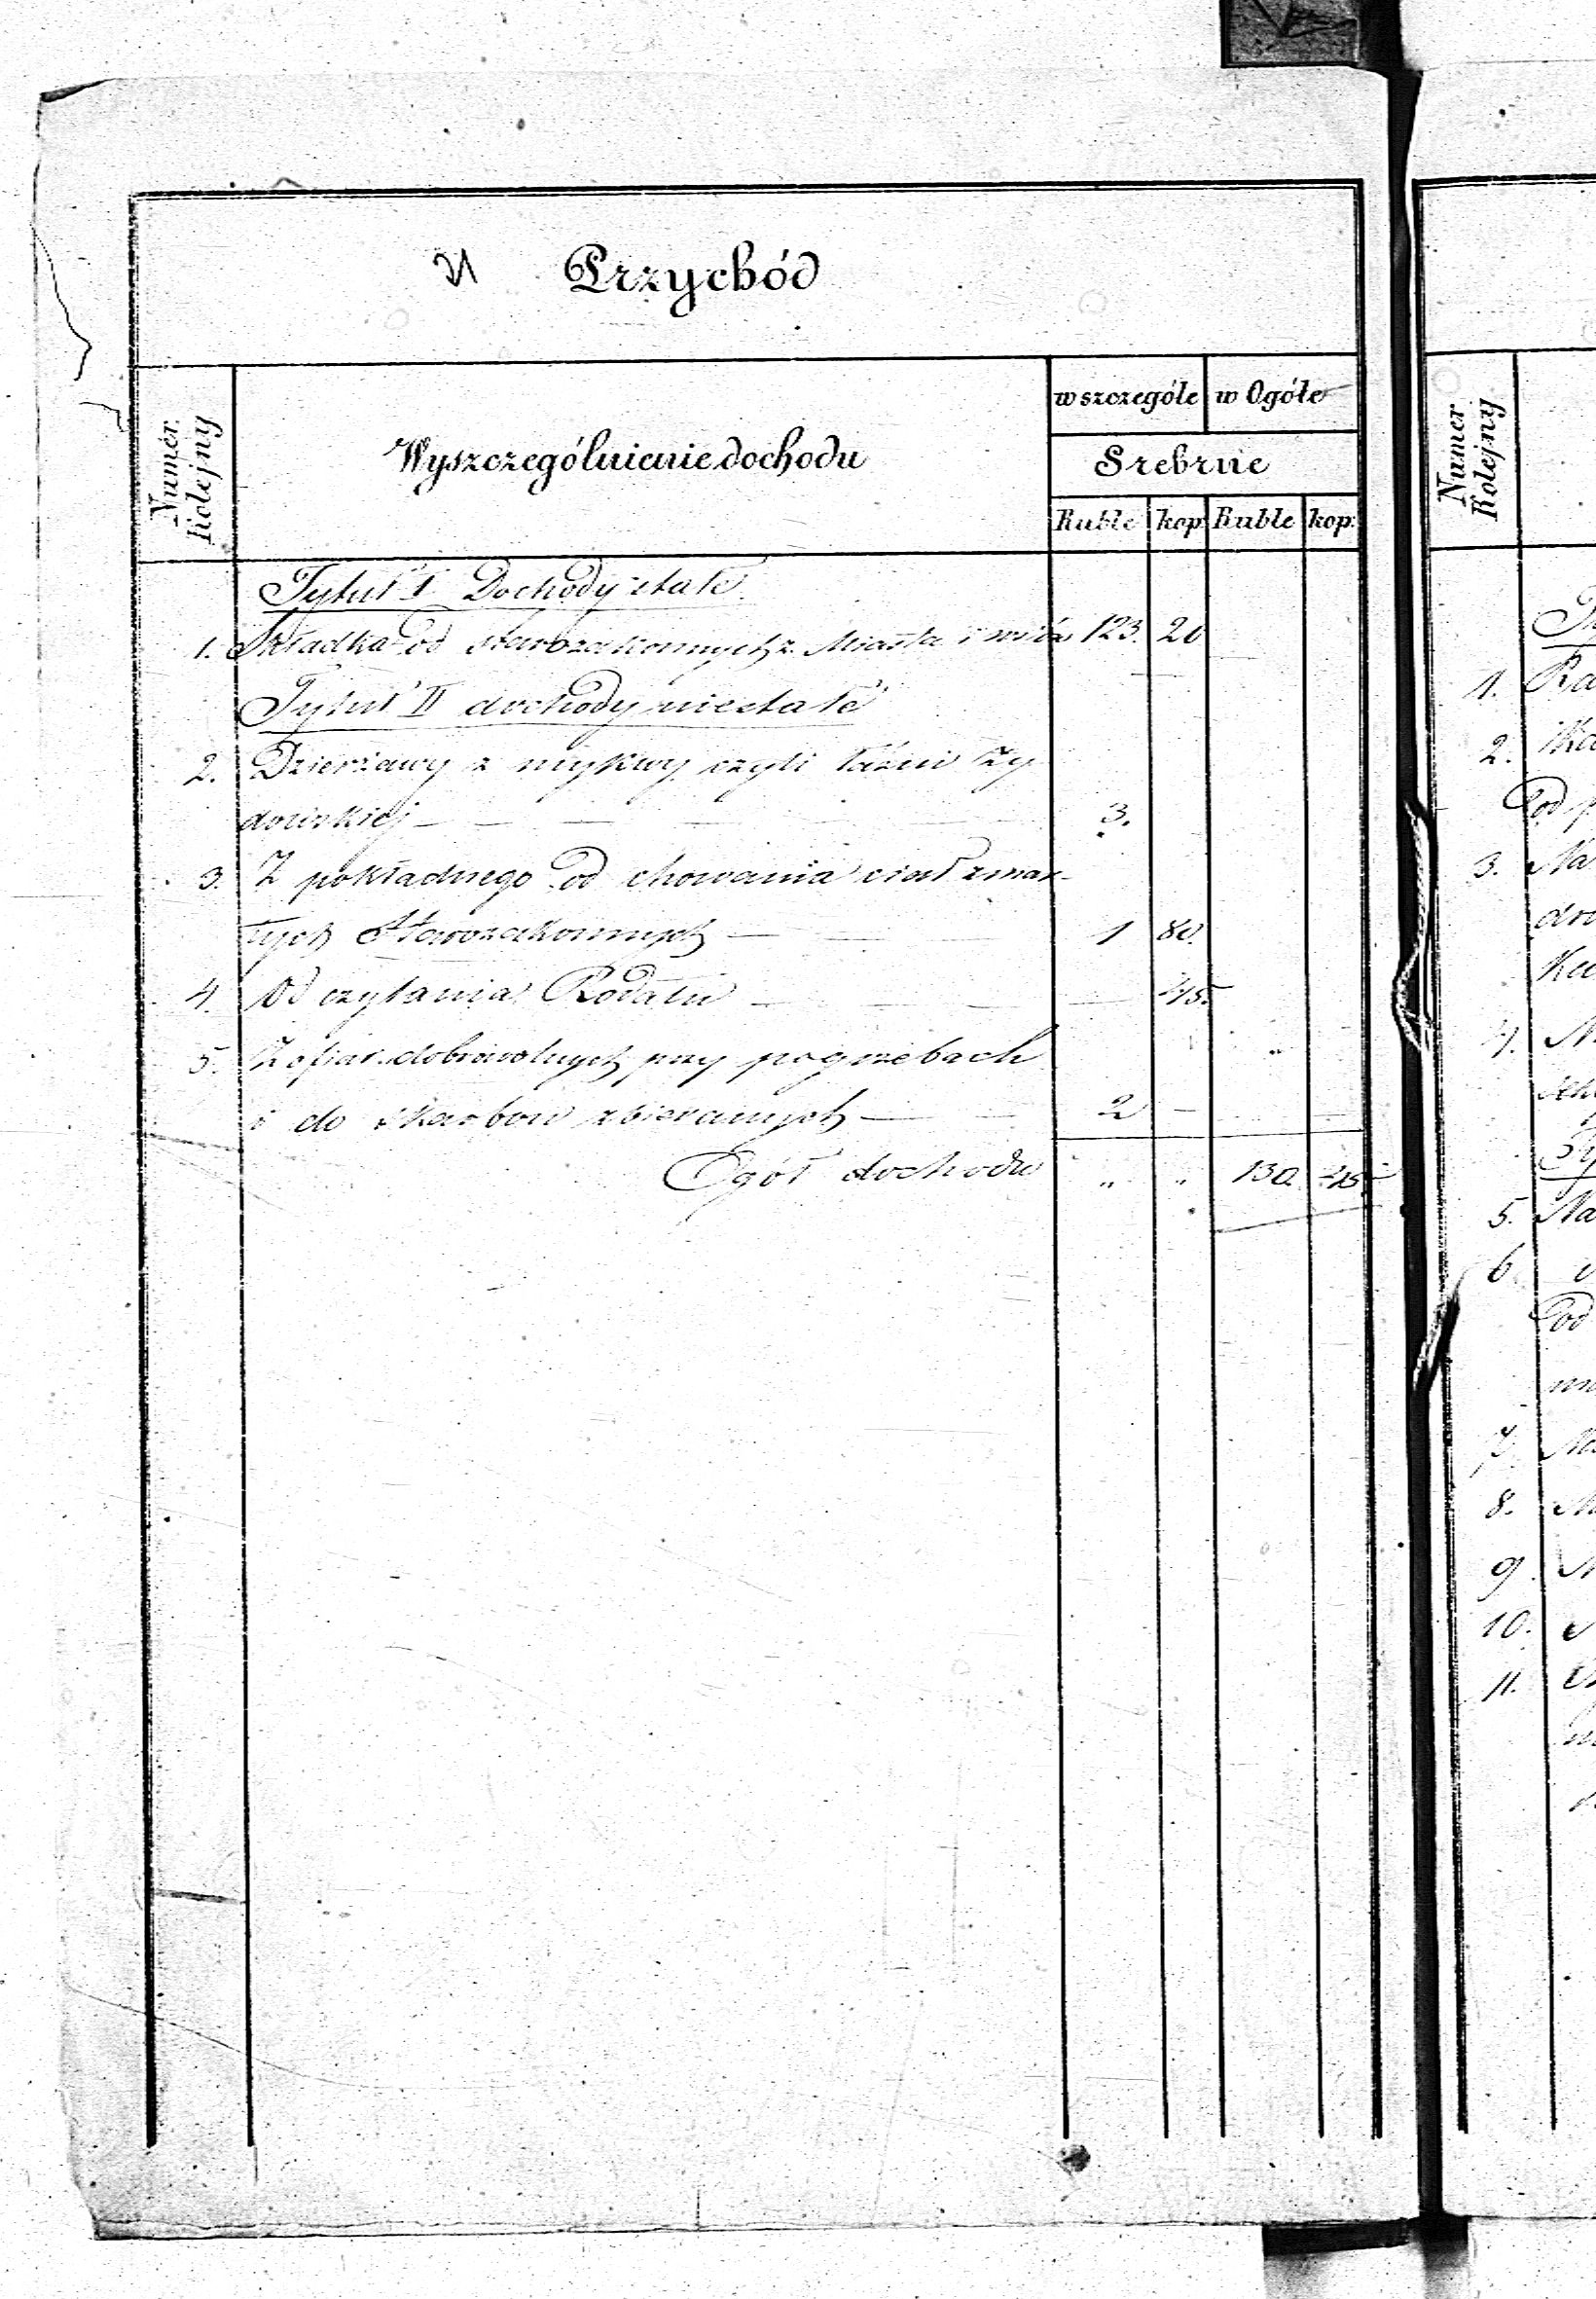 21 Przychód
Numer Kolejny
Wyszczególnienie dochodu
w szczególe
w Ogóle
Srebrne
Ruble kop. Ruble kop.
Tytuł I Dochody stałe
1. Składka od starozakonnych z Miasta i wsiów 123. 20
Tytuł II dochody niestałe
2. Dzierżawy z mykwy czyli łaźni ży
dowskiej — — — 3.
3. Z pokładnego od chowania ciał zmar-
łych Starozakonnych — — 1 80.
4. Od czytania Rodału — — — 45.
5. Z ofiar dobrowolnych przy pogrzebach
i do skarbon zbieranych — — 2 —
Ogół dochodu " " 130. 45.
Numer Kolejny
1. Ra
2.
Pod
3. Na
4.
5. Na
6.
Pod
7.
8.
9.
10.
11.